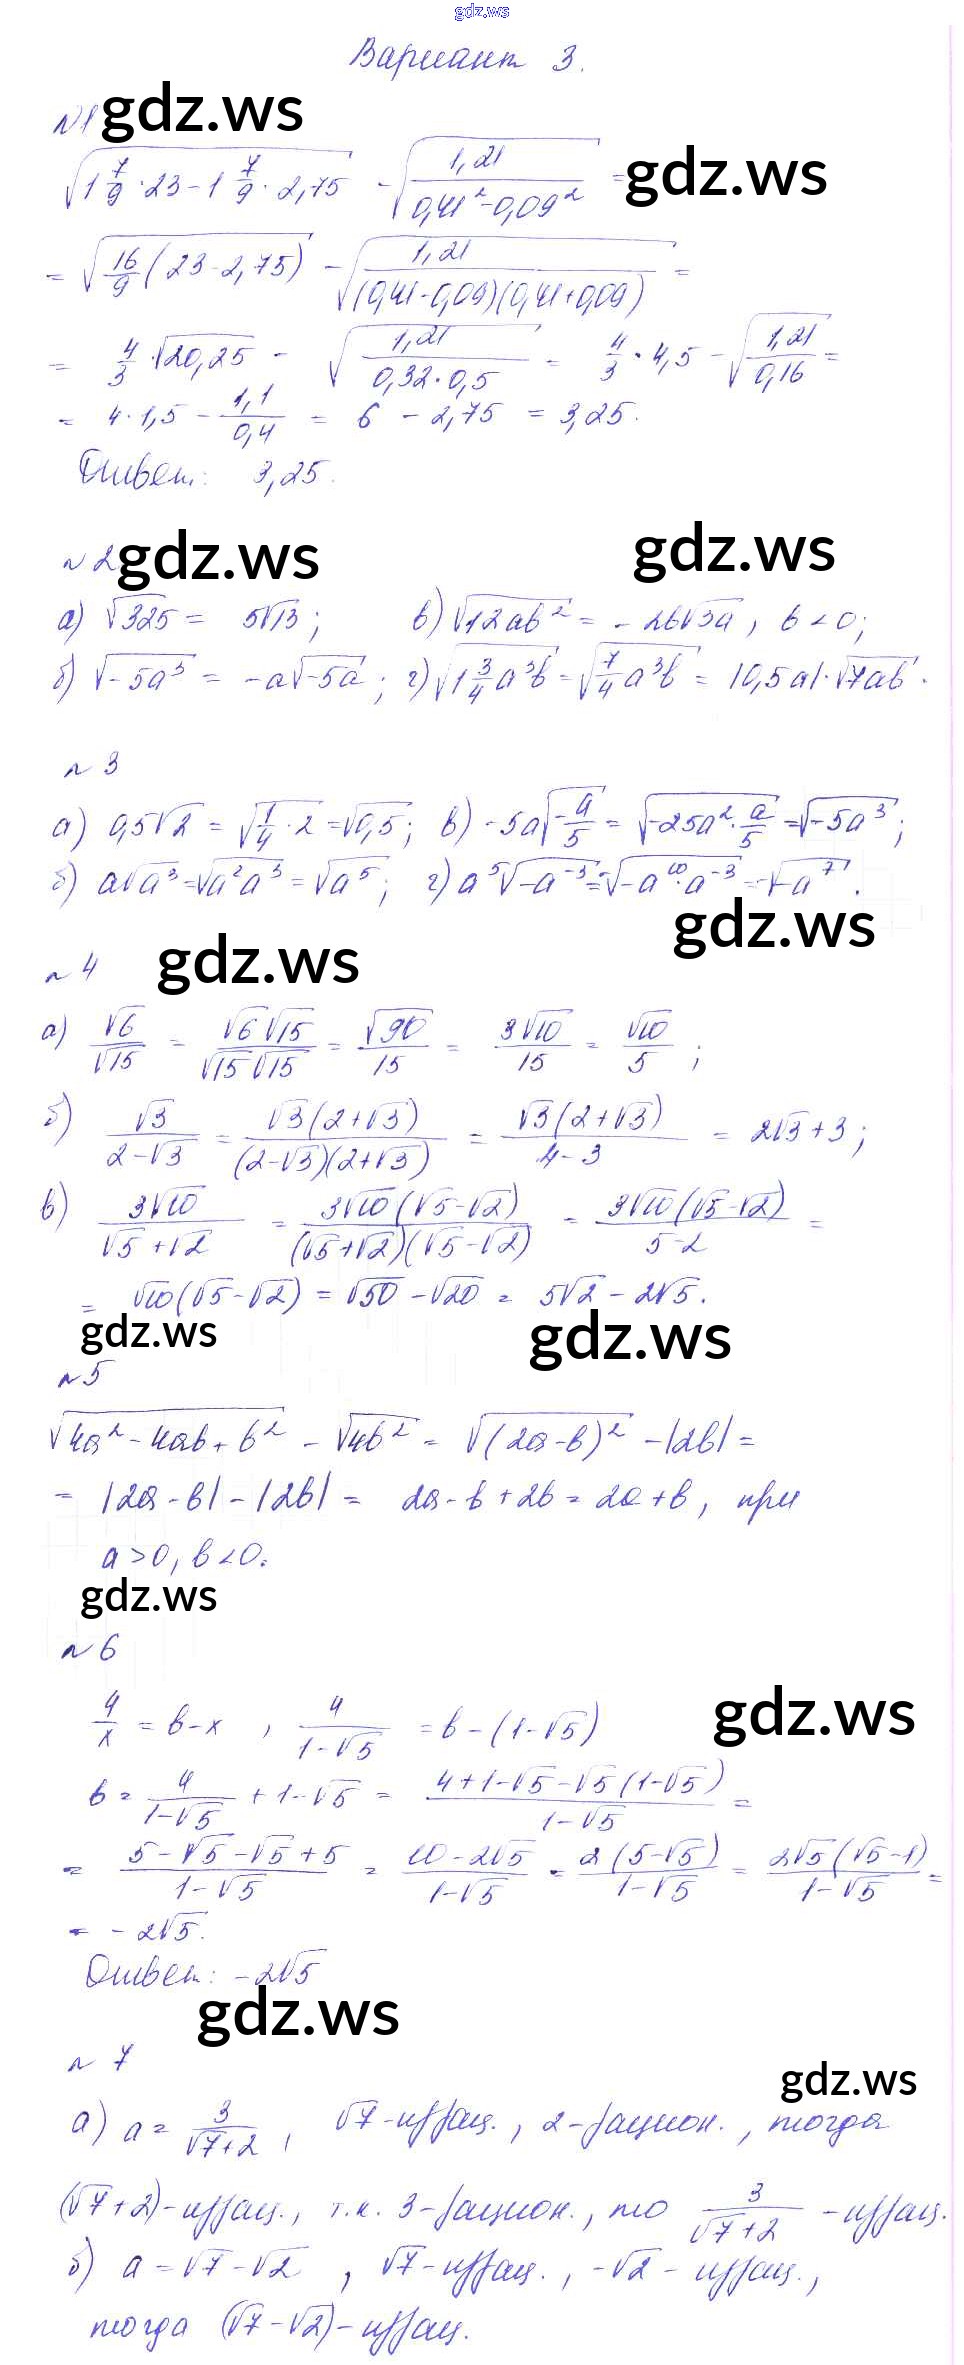 gdz.ws
Вариант 3.
№1 gdz.ws
√(1 7/9 · 23 - 1 7/9 · 2,75) - √(1,21/(0,41² - 0,09²)) = gdz.ws
= √(16/9 (23 - 2,75)) - √(1,21/((0,41-0,09)(0,41+0,09))) =
= 4/3 · √20,25 - √(1,21/(0,32·0,5)) = 4/3 · 4,5 - √(1,21/0,16) =
= 4·1,5 - 1,1/0,4 = 6 - 2,75 = 3,25.
Ответ: 3,25.
№2 gdz.ws gdz.ws
а) √325 = 5√13; в) √(12ab²) = -2b√3a, b<0;
б) √(-5a³) = -a√(-5a); г) √(1 3/4 a³b) = √(7/4 a³b) = |0,5a|·√7ab.
№3
а) 0,5√2 = √(1/4 · 2) = √0,5; в) -5a√(-a/5) = √(-25a² · a/5) = √(-5a³);
б) a√a³ = √(a²a³) = √a⁵; г) a⁵√(-a⁻³) = -√(-a¹⁰·a⁻³) = -√(-a⁷).
gdz.ws
№4 gdz.ws
а) √6/√15 = √6√15/(√15√15) = √90/15 = 3√10/15 = √10/5;
б) √3/(2-√3) = √3(2+√3)/((2-√3)(2+√3)) = √3(2+√3)/(4-3) = 2√3+3;
в) 3√10/(√5+√2) = 3√10(√5-√2)/((√5+√2)(√5-√2)) = 3√10(√5-√2)/(5-2) =
= √10(√5-√2) = √50 - √20 = 5√2 - 2√5.
gdz.ws gdz.ws
№5
√(4a² - 4ab + b²) - √4b² = √((2a-b)²) - |2b| =
= |2a-b| - |2b| = 2a-b+2b = 2a+b, при
a>0, b<0.
gdz.ws
№6
4/x = b-x, 4/(1-√5) = b-(1-√5) gdz.ws
b = 4/(1-√5) + 1-√5 = (4+1-√5-√5(1-√5))/(1-√5) =
= (5-√5-√5+5)/(1-√5) = (10-2√5)/(1-√5) = 2(5-√5)/(1-√5) = 2√5(√5-1)/(1-√5) =
= -2√5.
Ответ: -2√5
gdz.ws
№7
gdz.ws
а) a = 3/(√7+2), √7-иррац., 2-рацион., тогда
(√7+2)-иррац., т.к. 3-рацион., то 3/(√7+2) - иррац.
б) a = √7-√2, √7-иррац., -√2 - иррац.,
тогда (√7-√2)-иррац.